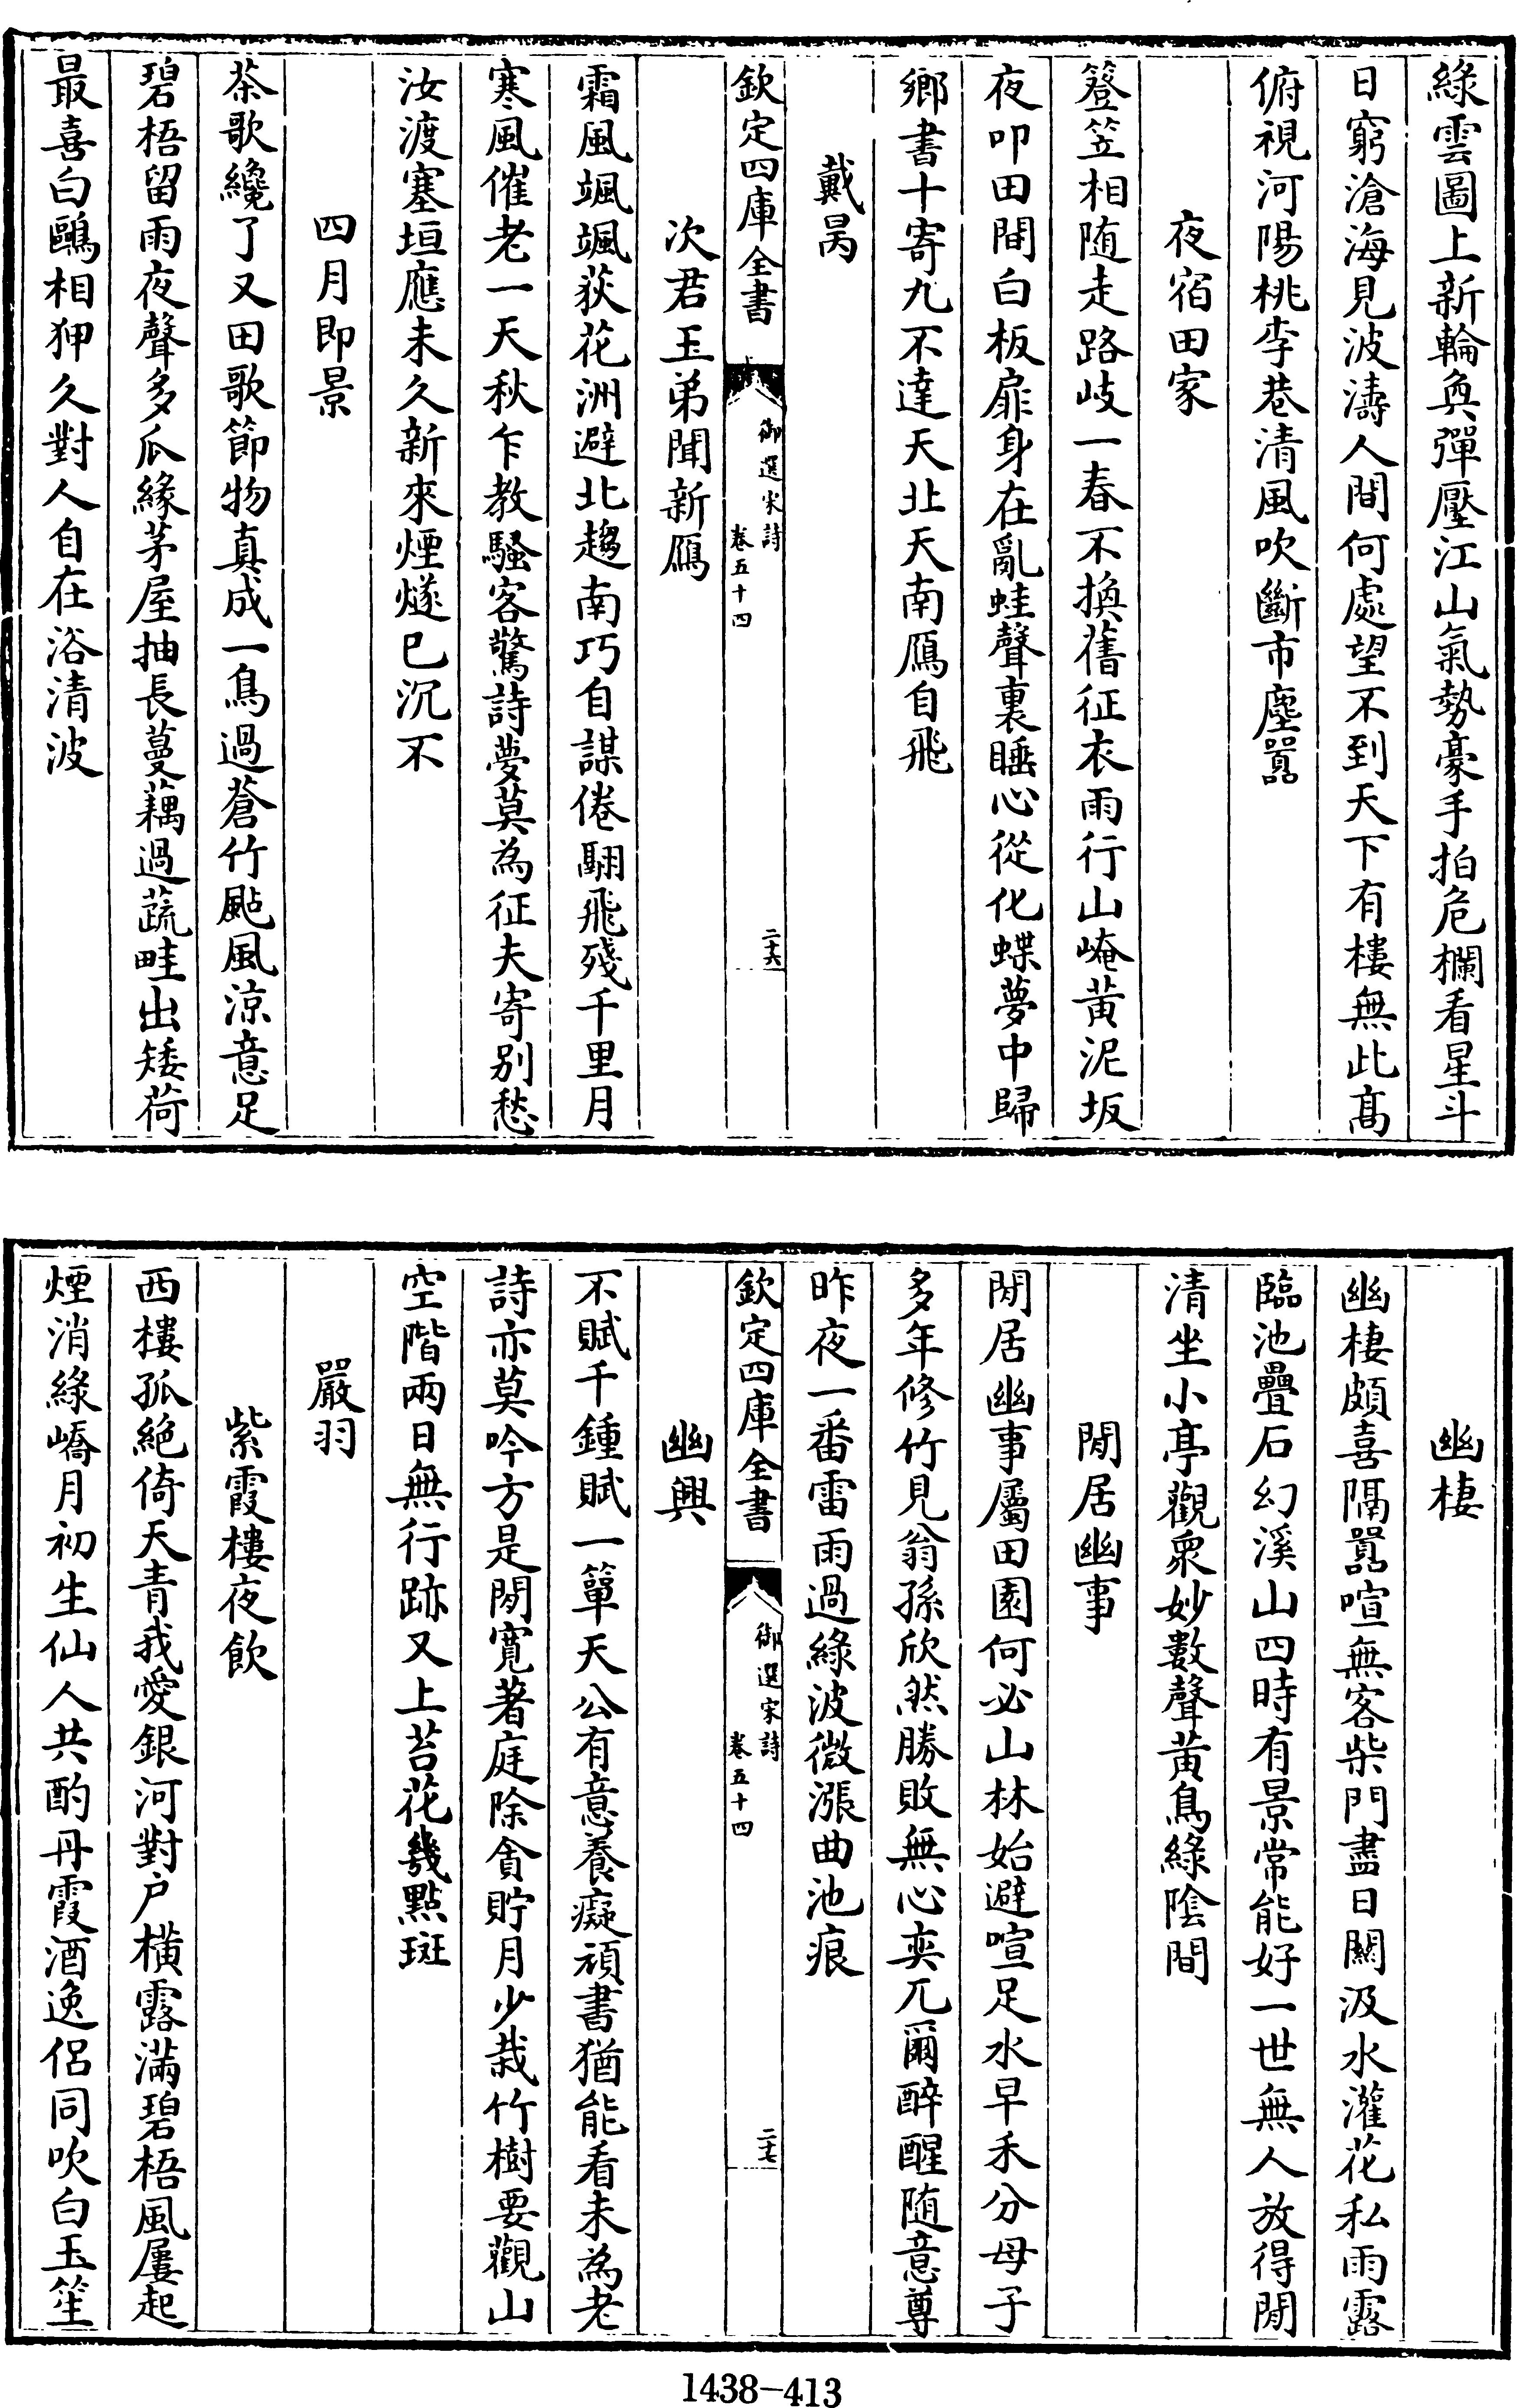 綠雲圖上新輪奐彈壓江山氣勢豪手拍危欄看星斗
日窮滄海見波濤人間何處望不到天下有樓無此髙
俯視河陽桃李巷清風吹斷市塵囂
夜宿田家
簦笠相随走路岐一春不換舊征衣雨行山崦黃泥坂
夜叩田間白板扉身在亂蛙聲裏睡心從化蝶夢中歸
鄉書十寄九不達天北天南鴈自飛
戴昺
欽定四庫全書
御選宋詩
卷五十四
二十六
次君玉弟聞新鴈
霜風颯颯荻花洲避北趨南巧自謀倦翮飛殘千里月
寒風催老一天秋乍教騷客驚詩夢莫為征夫寄别愁
汝渡塞垣應未久新來煙燧已沉不
四月即景
茶歌纔了又田歌節物真成一鳥過蒼竹颭風涼意足
碧梧留雨夜聲多瓜緣茅屋抽長蔓藕過蔬畦出矮荷
最喜白鷗相狎久對人自在浴清波
幽棲
幽棲頗喜隔囂喧無客柴門盡日關汲水灌花私雨露
臨池疊石幻溪山四時有景常能好一世無人放得閒
清坐小亭觀衆妙數聲黃鳥綠陰間
閒居幽事
閒居幽事屬田園何必山林始避喧足水早禾分母子
多年修竹見翁孫欣然勝敗無心奕兀爾醉醒随意尊
昨夜一番雷雨過綠波微漲曲池痕
欽定四庫全書
御選宋詩
卷五十四
二十七
幽興
不賦千鍾賦一簞天公有意養癡頑書猶能看未為老
詩亦莫吟方是閒寛著庭除貪貯月少栽竹樹要觀山
空階兩日無行跡又上苔花幾點斑
嚴羽
紫霞樓夜飲
西樓孤絶倚天青我愛銀河對户橫露滿碧梧風屢起
煙消綠嶠月初生仙人共酌丹霞酒逸侣同吹白玉笙
1438-413